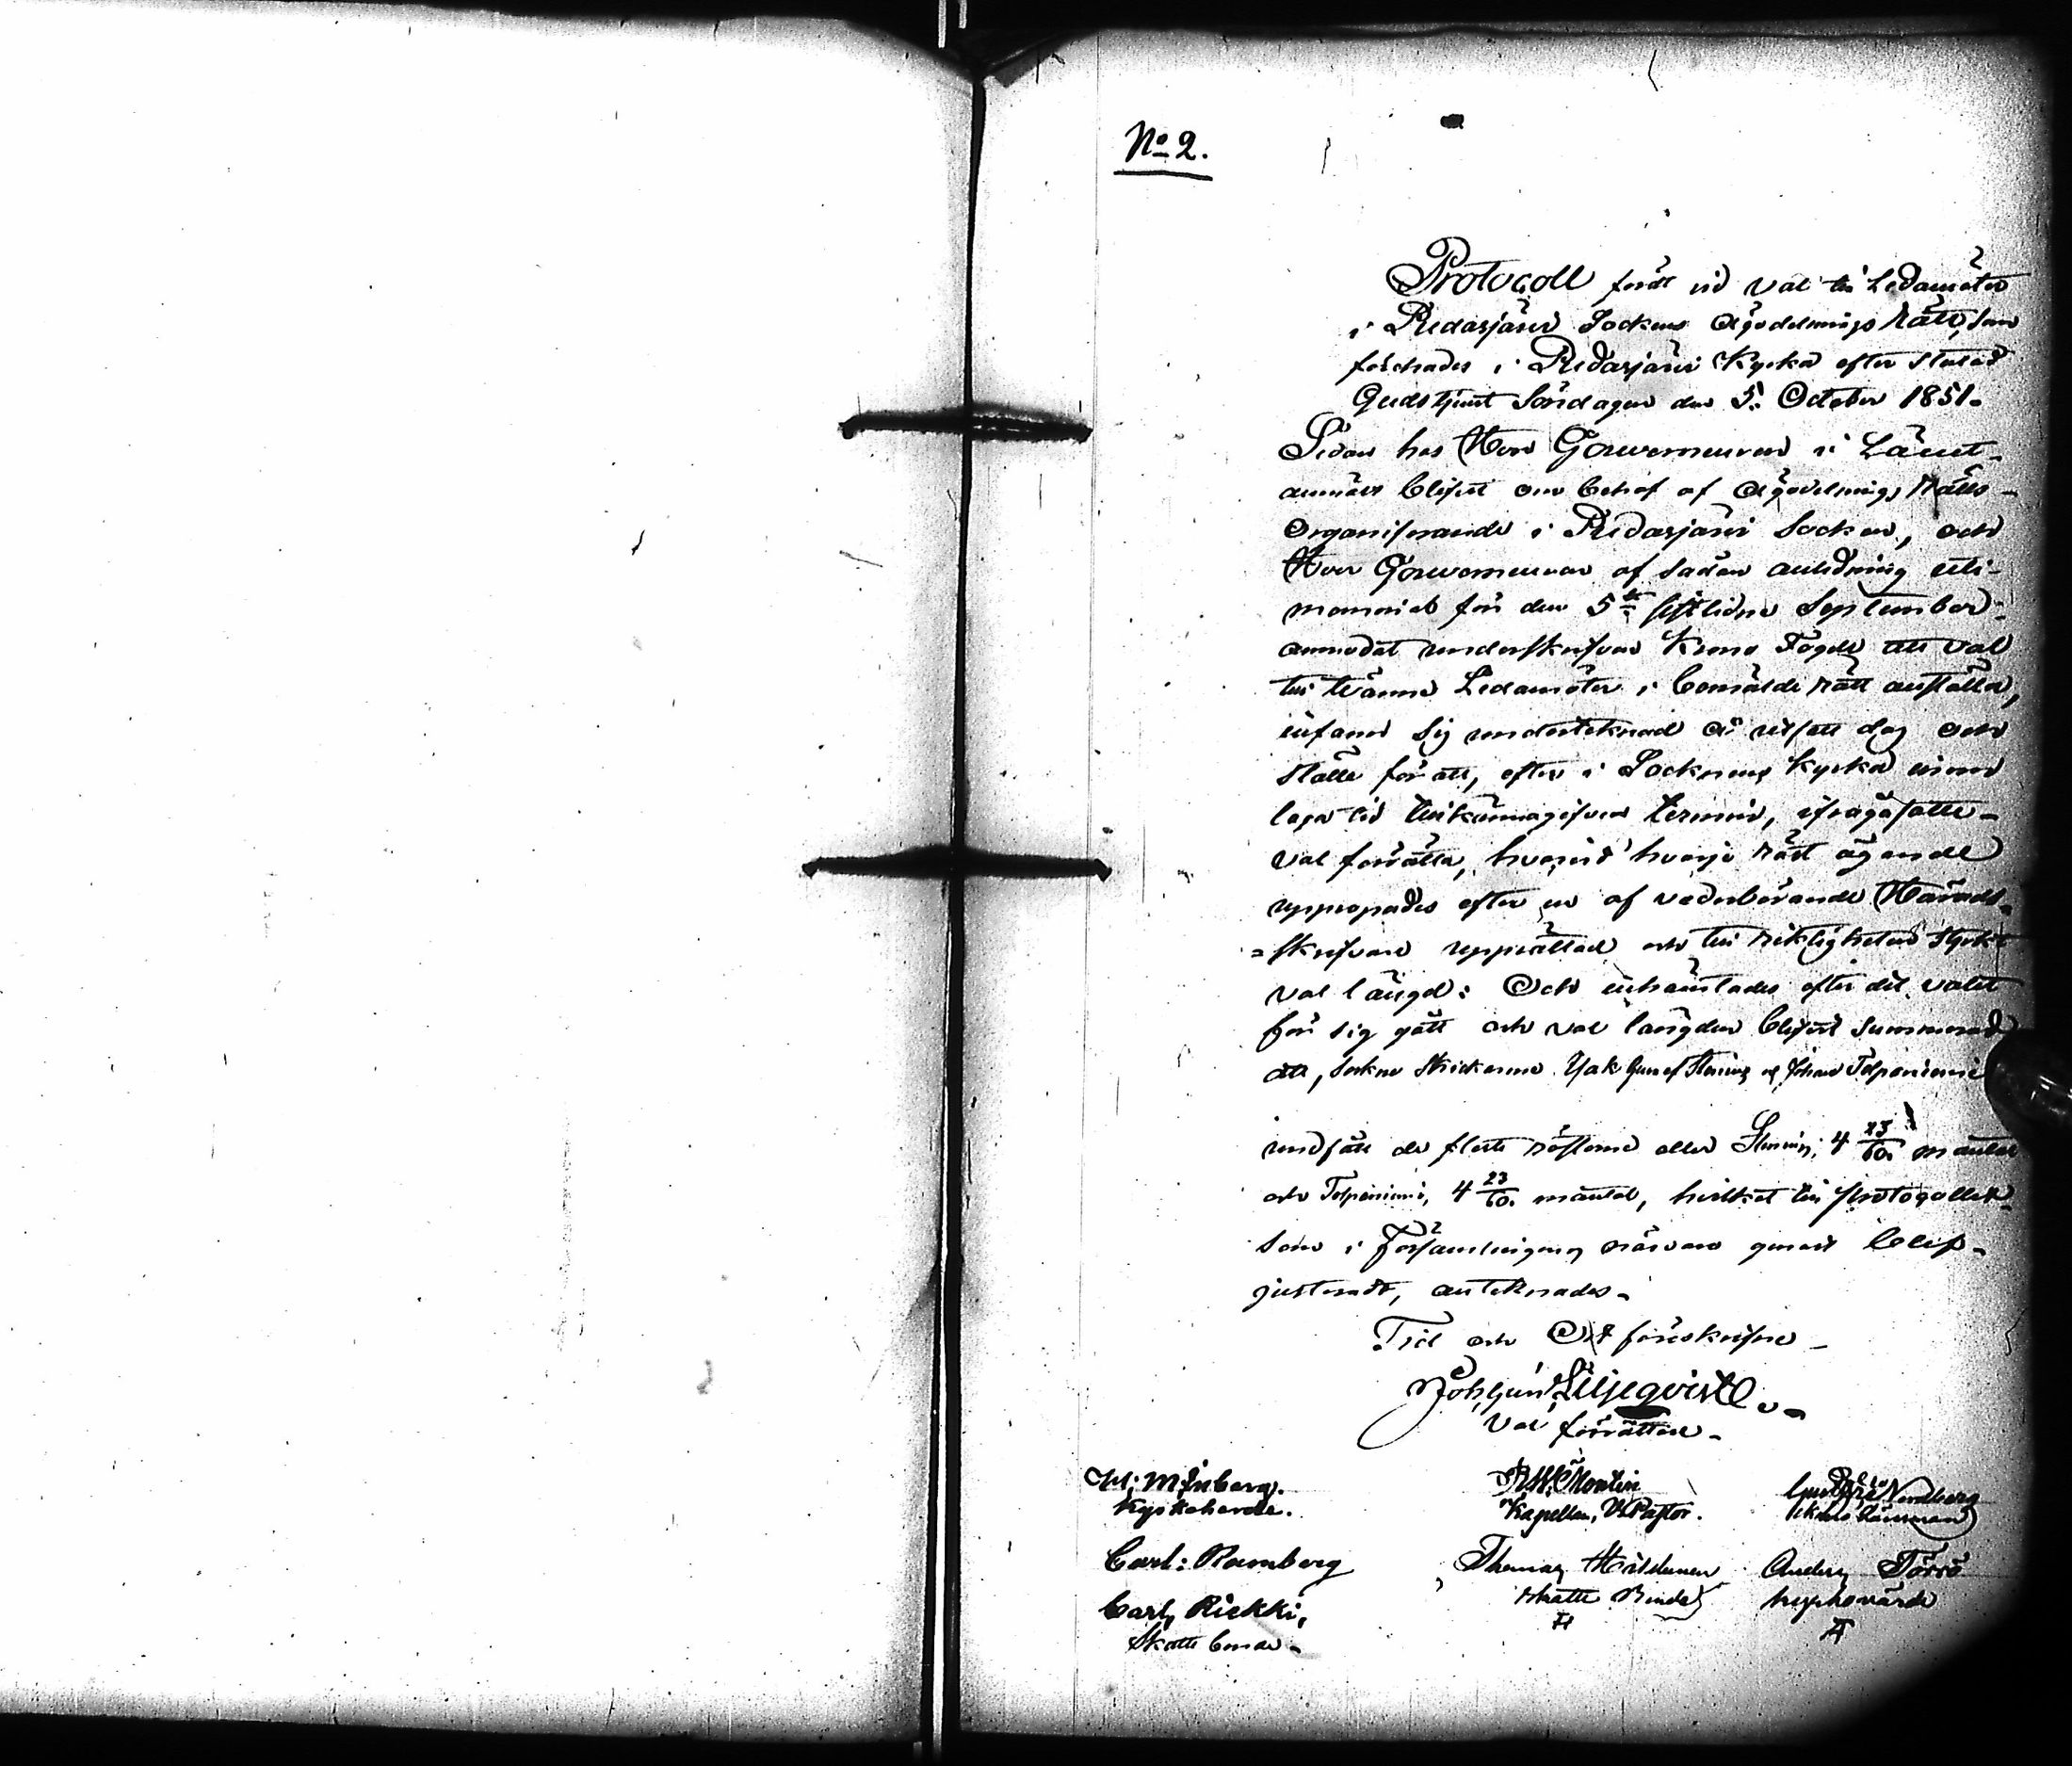 No 2.
Protocoll fördt vid val till Ledamöter
i Pidasjärvi Sockens Ägodelnings Rätt, som
förehades i Pidasjärvi Kyrka efter slutad
Gudstjenst Söndagen den 5. October 1851.
Sedan hos Herr Gouverneuren i Länet
anmält blifvit om behof af Ägodelnings Rätts
organiserande i Pidasjärvi Socken, och
Herr Gouverneuren af sådan anledning uti
memorial för den 5te sistlidne September
anmodat underskrifven Krono Fogde att val
till tvänne Ledamöter i bemälde rätt anställa,
infann sig undertecknad å utsatt dag och
ställe för att, efter i Socknens Kyrka innom
laga tid tillkännagifven termin, ifrågasatte
val förrätta, hvarvid hvarje röst ägande
uppropades efter en af vederbörande Härads-
=skrifvare upprättad och till riktigheten styrkt
val längd: Och inhämtades efter det valet
för sig gått och val längden blifvit summerad
att, Socknes Skickarne Jak Gustaf Stening och Johan Tolpaniemi
undfått de flesta rösterna eller Stening, 4 23/60. mantal
och Tolpaniemi, 4 23/60. mantal, hvilket till protogollet
som i Församlingens närvaro genast blef
justeradt, antecknades.
Tid och Ort föreskrifne
Johan Liljeqvist.
Val förrättare
M: Mjnberg.
Kyrkoherde.
Montin
Kapellan, V Pastor.
Nordberg
Länsman
Carl: Ramberg
Thomas Hildunen
Skatte Bonde
Anders Törrö
kyrkovärd
Carl Riekki,
Skatte bonde